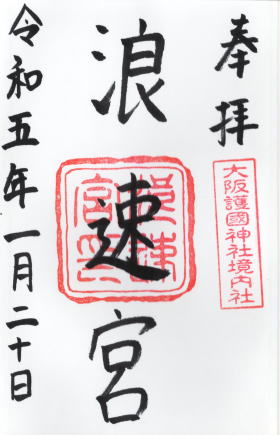 奉拝
大阪護國神社境内社
浪速宮
令和五年一月二十日